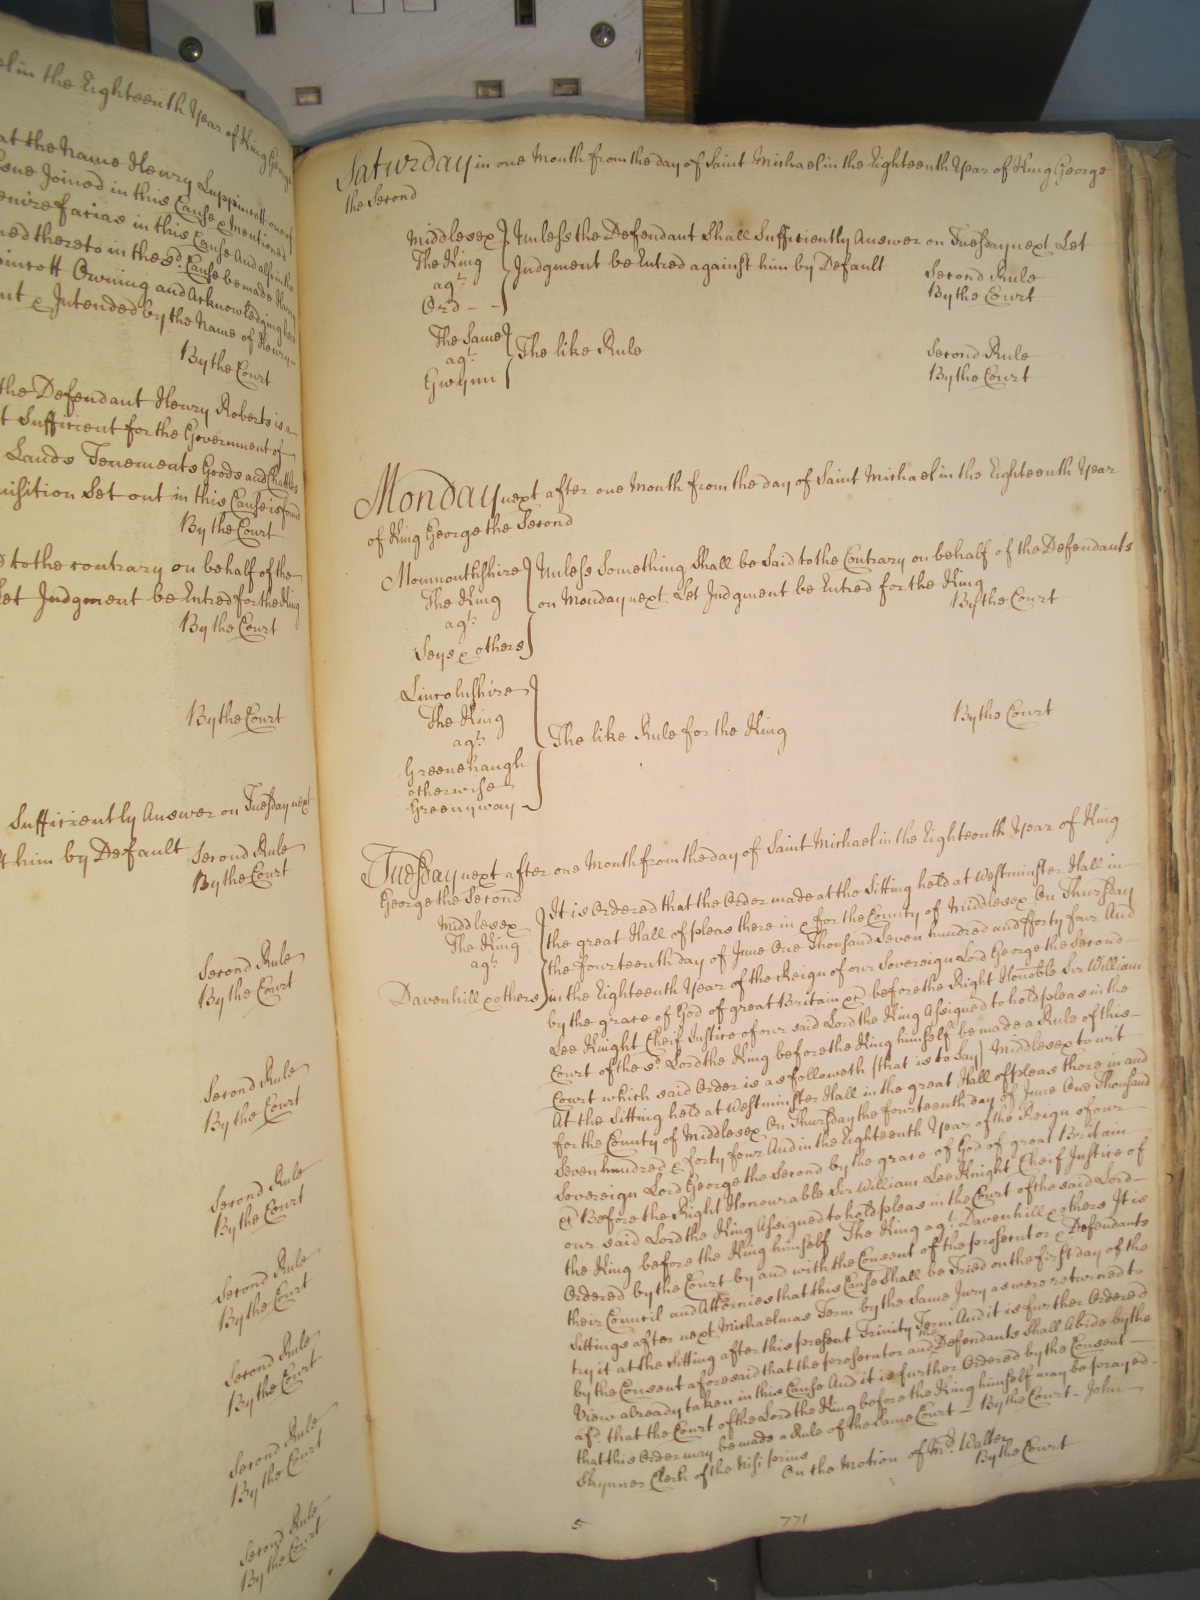 el in the Eighteenth Year of King George
at the Name Henry Luppincott one of
Gene Joined in this Cause & Mentioned
enire facias in this Cause And also in the
ned thereto in the sd. Cause be made Henry
pincott Owning and Acknowledging
nt & Intended by the Name of Henry
By the Court
the Defendant Henry Roberts is a
t Sufficient for the Government of
Lands Tenements Goods and Chattles
uisition Set out in this Cause is found
By the Court
e to the contrary on behalf of the
Let Judgment be Entred for the King
By the Court
By the Court
Sufficiently Answer on Tuesday next
t him by Default Second Rule
By the Court
Second Rule
By the Court
Second Rule
By the Court
Second Rule
By the Court
Second Rule
By the Court
Second Rule
By the Court
Second Rule
By the Court
Second Rule
By the Court
Saturday in one Month from the day of Saint Michael in the Eighteenth Year of King George
the Second
Middlesex Unless the Defendant Shall Sufficiently Answer on Tuesday next Let
The King Judgment be Entred against him by Default Second Rule
agt. By the Court
Ord
The Same
agt. The like Rule Second Rule
Gwynn By the Court
Monday next after one Month from the day of Saint Michael in the Eighteenth Year
of King George the Second
Monmouthshire Unless Something Shall be Said to the Contrary on behalf of the Defendants
The King on Monday next Let Judgment be Entred for the King
agt. By the Court
Seys & others
Lincolnshire
The King
agt. The like Rule for the King By the Court
Greenehaugh
otherwise
Greenyway
Tuesday next after one Month from the day of Saint Michael in the Eighteenth Year of King
George the Second
Middlesex It is Ordered that the Order made at the Sitting held at Westminster Hall in
The King the great Hall of pleas there in & for the County of Middlesex On Thursday
agt. the fourteenth day of June One Thousand Seven hundred and fforty four And
Davenhill & others in the Eighteenth Year of the Reign of our Sovereign Lord George the Second
by the grace of God of great Britain &c before the Right Honoble Sir William
Lee Knight Cheif Justice of our said Lord the King Assigned to hold pleas in the
Court of the sd. Lord the King before the King himself be made a Rule of this
Court which said Order is as followeth (that is to Say) Middlesex to wit
At the Sitting held at Westminster Hall in the great Hall of pleas there in and
for the County of Middlesex On Thursday the fourteenth day of June One Thousand
Seven hundred & forty four And in the Eighteenth Year of the Reign of our
Sovereign Lord George the Second by the grace of God of great Britain
&c Before the Right Honourable Sir William Lee Knight Cheif Justice of
our said Lord the King Assigned to hold pleas in the Court of the said Lord
the King before the King himself The King agt. Davenhill & others It is
Ordered by the Court by and with the Consent of the prosecutor & Defendants
their Council and Attornies that this Cause Shall be Tried on the first day of the
Sittings after next Michaelmas Term by the Same Jury as were returned to
try it at the Sitting after this present Trinity Term And it is further Ordered
by the Consent aforesaid that the prosecutor and the Defendants Shall Abide by the
View already taken in this Cause And it is further Ordered by the Consent
afd. that the Court of the Lord the King before the King himself may be prayed
that this Order may be made a Rule of the Same Court - By the Court - John
Skynner Clerk of the Nisi prius
On the Motion of Mr. Walter
By the Court
5 771